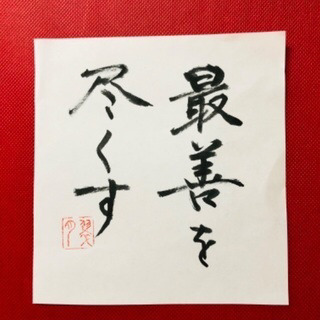 最善を
尽くす